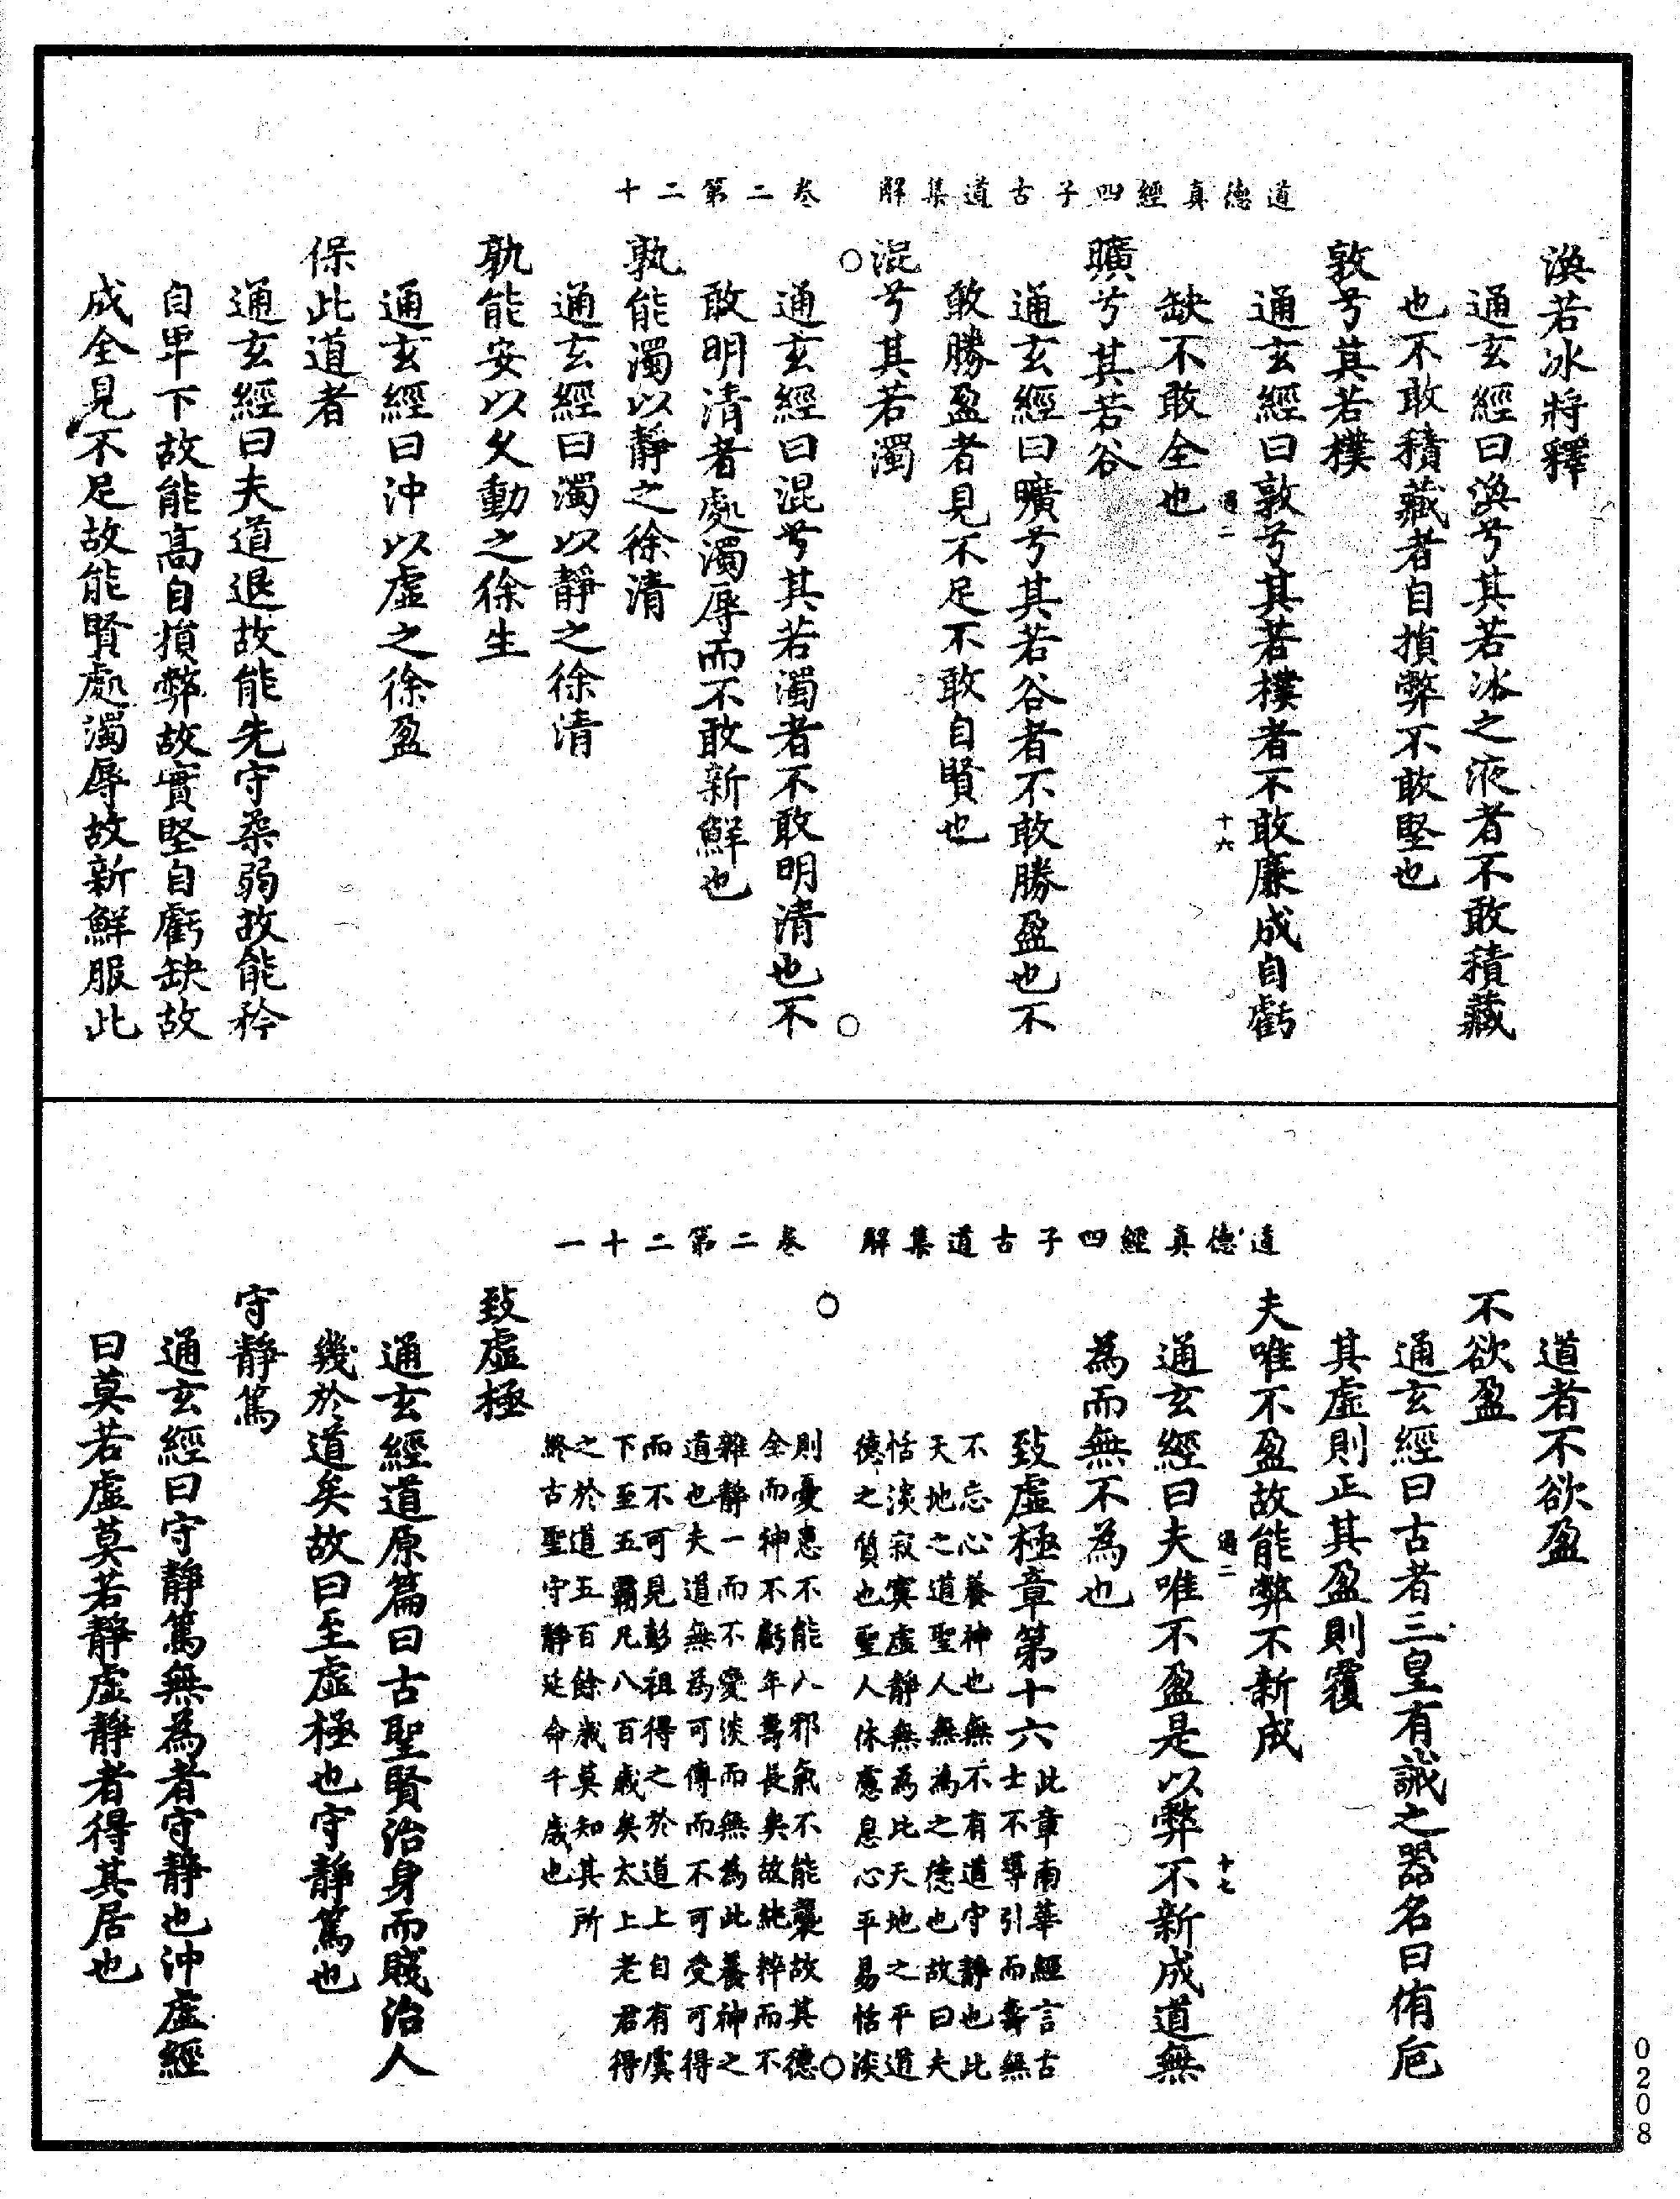 道德真經四子古道集解　卷二第二十
渙若冰將釋
通玄經曰渙兮其若冰之液者不敢積藏
也不敢積藏者自損弊不敢堅也
敦兮其若樸
通玄經曰敦兮其若樸者不敢廉成自虧
通二　十六
缺不敢全也
曠兮其若谷
通玄經曰曠兮其若谷者不敢勝盈也不
敢勝盈者見不足不敢自賢也
混兮其若濁
通玄經曰混兮其若濁者不敢明清也不
敢明清者處濁辱而不敢新鮮也
孰能濁以靜之徐清
通玄經曰濁以靜之徐清
孰能安以久動之徐生
通玄經曰沖以虛之徐盈
保此道者
通玄經曰夫道退故能先守柔弱故能矜
自卑下故能高自損弊故實堅自虧缺故
成全見不足故能賢處濁辱故新鮮服此
道德真經四子古道集解　卷二第二十一
道者不欲盈
不欲盈
通玄經曰古者三皇有誡之器名曰侑巵
其虛則正其盈則覆
夫唯不盈故能弊不新成
通二　十七
通玄經曰夫唯不盈是以弊不新成道無
為而無不為也
致虛極章第十六
此章南華經言古
士不導引而壽無
不忘心養神也無不有道守靜也此
天地之道聖人無為之德也故曰夫
恬淡寂寞虛靜無為比天地之平道
德之質也聖人休慮息心平易恬淡
則憂患不能入邪氣不能襲故其德
全而神不虧年壽長矣故純粹而不
雜靜一而不變淡而無為此養神之
道也夫道無為可傳而不可受可得
而不可見彭祖得之於道上自有虞
下至五霸凡八百歲矣太上老君得
之於道五百餘歲莫知其所
終古聖守靜延命千歲也
致虛極
通玄經道原篇曰古聖賢治身而賤治人
幾於道矣故曰至虛極也守靜篤也
守靜篤
通玄經曰守靜篤無為者守靜也沖虛經
曰莫若虛莫若靜虛靜者得其居也
0208